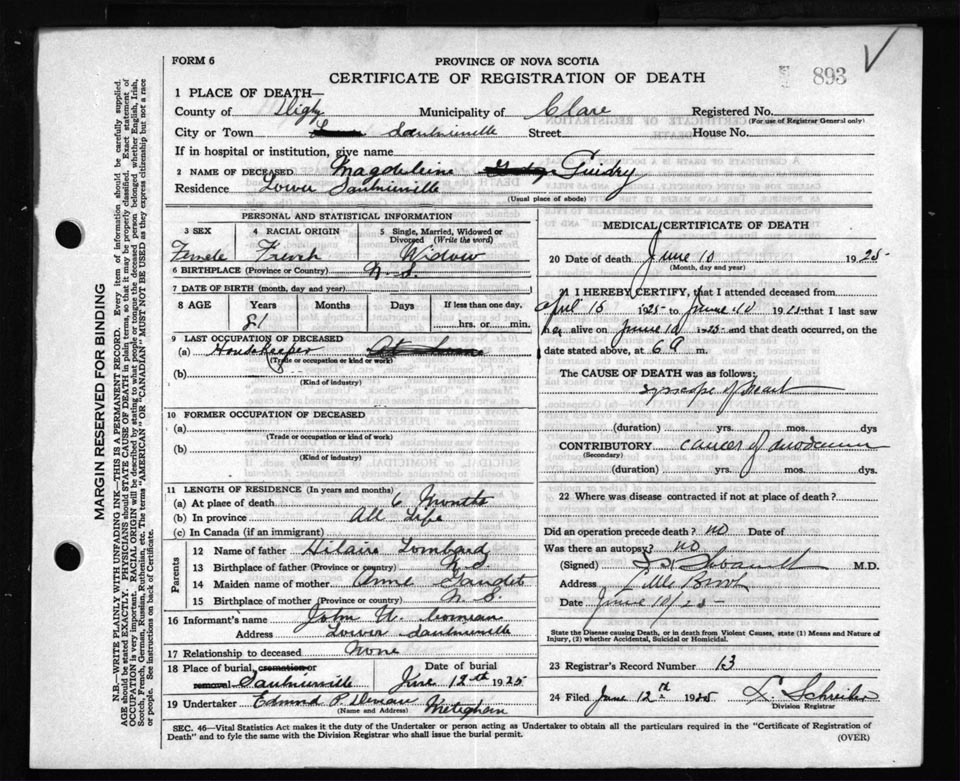 FORM 6
PROVINCE OF NOVA SCOTIA
CERTIFICATE OF REGISTRATION OF DEATH
893
1 PLACE OF DEATH—
County of Digby Municipality of Clare Registered No.
(For use of Registrar General only)
City or Town Saulnierville Street House No.
If in hospital or institution, give name
2 NAME OF DECEASED Magdeleine Guidry
Residence Lower Saulnierville
(Usual place of abode)
PERSONAL AND STATISTICAL INFORMATION
3 SEX 4 RACIAL ORIGIN 5 Single, Married, Widowed or Divorced (Write the word)
Female French Widow
6 BIRTHPLACE (Province or Country) N.S.
7 DATE OF BIRTH (month, day and year)
8 AGE Years Months Days If less than one day,
81 hrs. or min.
9 LAST OCCUPATION OF DECEASED
(a) Housekeeper At home
(Trade or occupation or kind of work)
(b)
(Kind of industry)
10 FORMER OCCUPATION OF DECEASED
(a)
(Trade or occupation or kind of work)
(b)
(Kind of industry)
11 LENGTH OF RESIDENCE (In years and months)
(a) At place of death 6 Months
(b) In province All Life
(c) In Canada (if an immigrant)
Parents
12 Name of father Hilaire Lombard
13 Birthplace of father (Province or country) N.S.
14 Maiden name of mother Anne Gaudet
15 Birthplace of mother (Province or country) N.S.
16 Informant's name John W. Comeau
Address Lower Saulnierville
17 Relationship to deceased None
18 Place of burial, cremation or Date of burial
removal Saulnierville June 12th 1925
19 Undertaker Edmund P. Deveau Meteghan
(Name and Address)
MEDICAL CERTIFICATE OF DEATH
20 Date of death June 10 1925
(Month, day and year)
21 I HEREBY CERTIFY, that I attended deceased from
April 15 1925 to June 10 1925 that I last saw
her alive on June 10 1925 and that death occurred, on the
date stated above, at 6 a m.
The CAUSE OF DEATH was as follows:
syncope of heart
(duration) yrs. mos. dys.
CONTRIBUTORY cancer of duodenum
(Secondary)
(duration) yrs. mos. dys.
22 Where was disease contracted if not at place of death?
Did an operation precede death? no Date of
Was there an autopsy? no
(Signed) M.D.
Address Little Brook
Date June 10/25
State the Disease causing Death, or in death from Violent Causes, state (1) Means and Nature of
Injury, (2) whether Accidental, Suicidal or Homicidal.
23 Registrar's Record Number 13
24 Filed June 12th 1925 L. Schreiber
Division Registrar
SEC. 46—Vital Statistics Act makes it the duty of the Undertaker or person acting as Undertaker to obtain all the particulars required in the "Certificate of Registration of
Death" and to fyle the same with the Division Registrar who shall issue the burial permit.
(OVER)
MARGIN RESERVED FOR BINDING
N.B.—WRITE PLAINLY WITH UNFADING INK—THIS IS A PERMANENT RECORD. Every item of information should be carefully supplied.
AGE should be stated EXACTLY. PHYSICIANS should STATE CAUSE OF DEATH in plain terms, so that it may be properly classified. Exact statement of
OCCUPATION is very important. RACIAL ORIGIN will be described by stating to what people or tongue the deceased person belonged whether English, Irish,
Scotch, French, German, Russian, Ruthenian, etc. The terms "AMERICAN" OR "CANADIAN" MUST NOT BE USED as they express citizenship but not a race
or people. See instructions on back of Certificate.